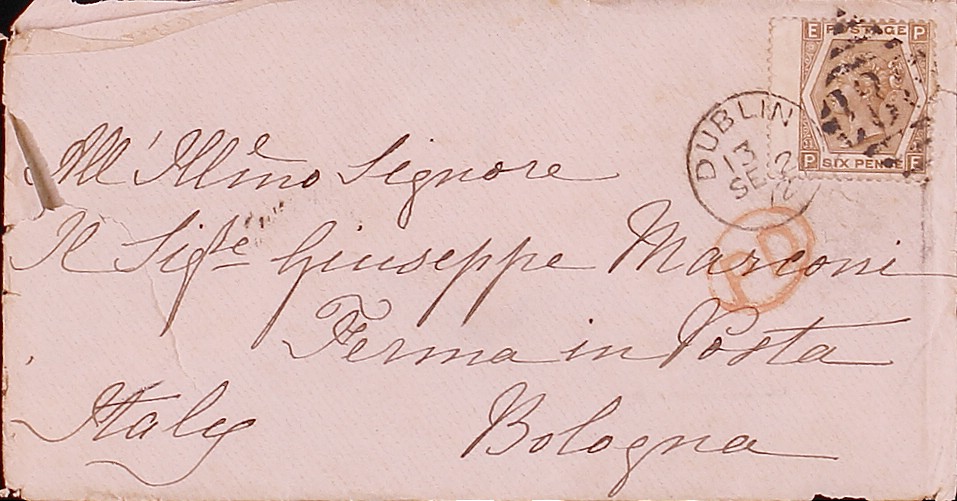 E POSTAGE P
P SIX PENCE F
DUBLIN
13
SE
PD
All' Illmo Signore
Il Sigre Giuseppe Marconi
Ferma in Posta
Bologna
Italy